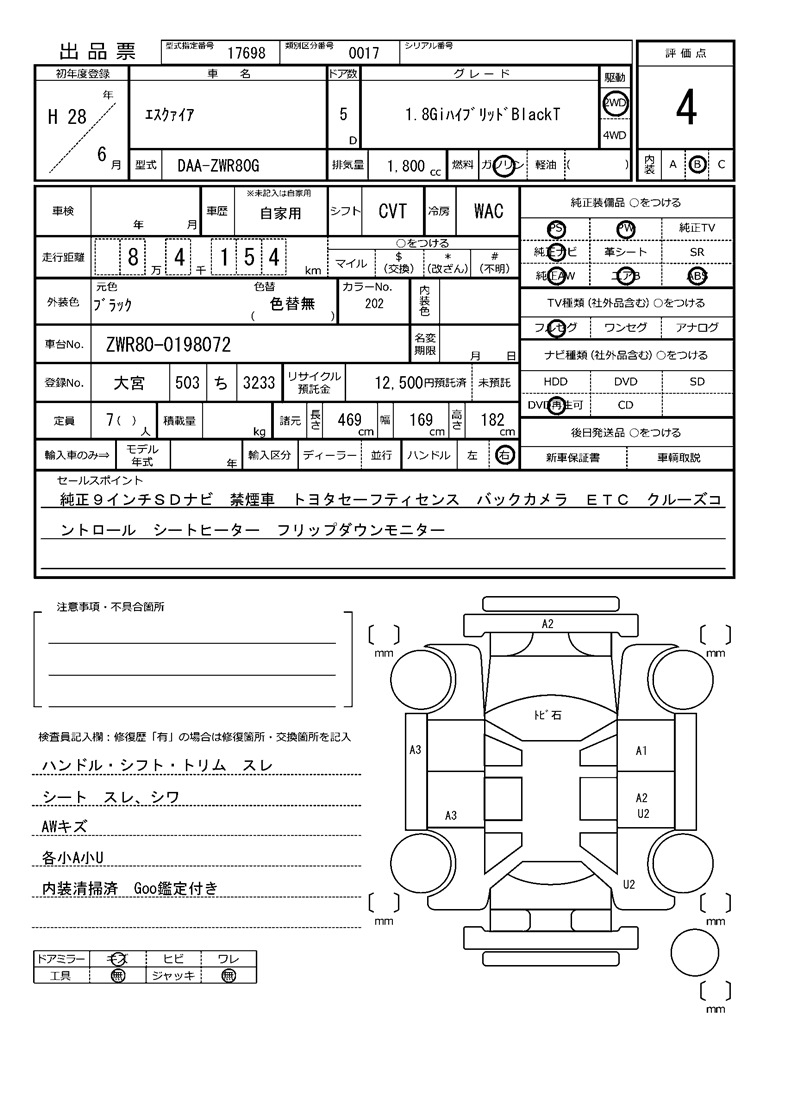 出品票 型式指定番号 17698 類別区分番号 0017 シリアル番号
評価点
4
内装 A B C
初年度登録 車名 ドア数 グレード 駆動
H 28 年 6 月 エスクァイア 5 D 1.8GiハイブリッドBlackT 2WD 4WD
型式 DAA-ZWR80G 排気量 1,800 cc 燃料 ガソリン 軽油 ( )
車検 年 月 車歴 ※未記入は自家用 自家用 シフト CVT 冷房 WAC
走行距離 8 万 4 千 1 5 4 km ○をつける
マイル $ (交換) * (改ざん) # (不明)
外装色 元色 ブラック 色替 色替無 ( ) カラーNo. 202 内装色
車台No. ZWR80-0198072 名変期限 月 日
登録No. 大宮 503 ち 3233 リサイクル預託金 12,500円預託済 未預託
定員 7 ( ) 人 積載量 kg 諸元 長さ 469 cm 幅 169 cm 高さ 182 cm
輸入車のみ⇒ モデル年式 年 輸入区分 ディーラー 並行 ハンドル 左 右
純正装備品 ○をつける
PS PW 純正TV
純正ナビ 革シート SR
純正AW エアB ABS
TV種類 (社外品含む) ○をつける
フルセグ ワンセグ アナログ
ナビ種類 (社外品含む) ○をつける
HDD DVD SD
DVD再生可 CD
後日発送品 ○をつける
新車保証書 車輌取説
セールスポイント
純正９インチＳＤナビ 禁煙車 トヨタセーフティセンス バックカメラ ＥＴＣ クルーズコ
ントロール シートヒーター フリップダウンモニター
注意事項・不具合箇所
検査員記入欄：修復歴「有」の場合は修復箇所・交換箇所を記入
ハンドル・シフト・トリム スレ
シート スレ、シワ
AWキズ
各小A小U
内装清掃済 Goo鑑定付き
ドアミラー キズ ヒビ ワレ
工具 無 ジャッキ 無
A2
mm mm
ﾄﾋﾞ石
A3 A1
A3 A2
U2
U2
mm mm
mm